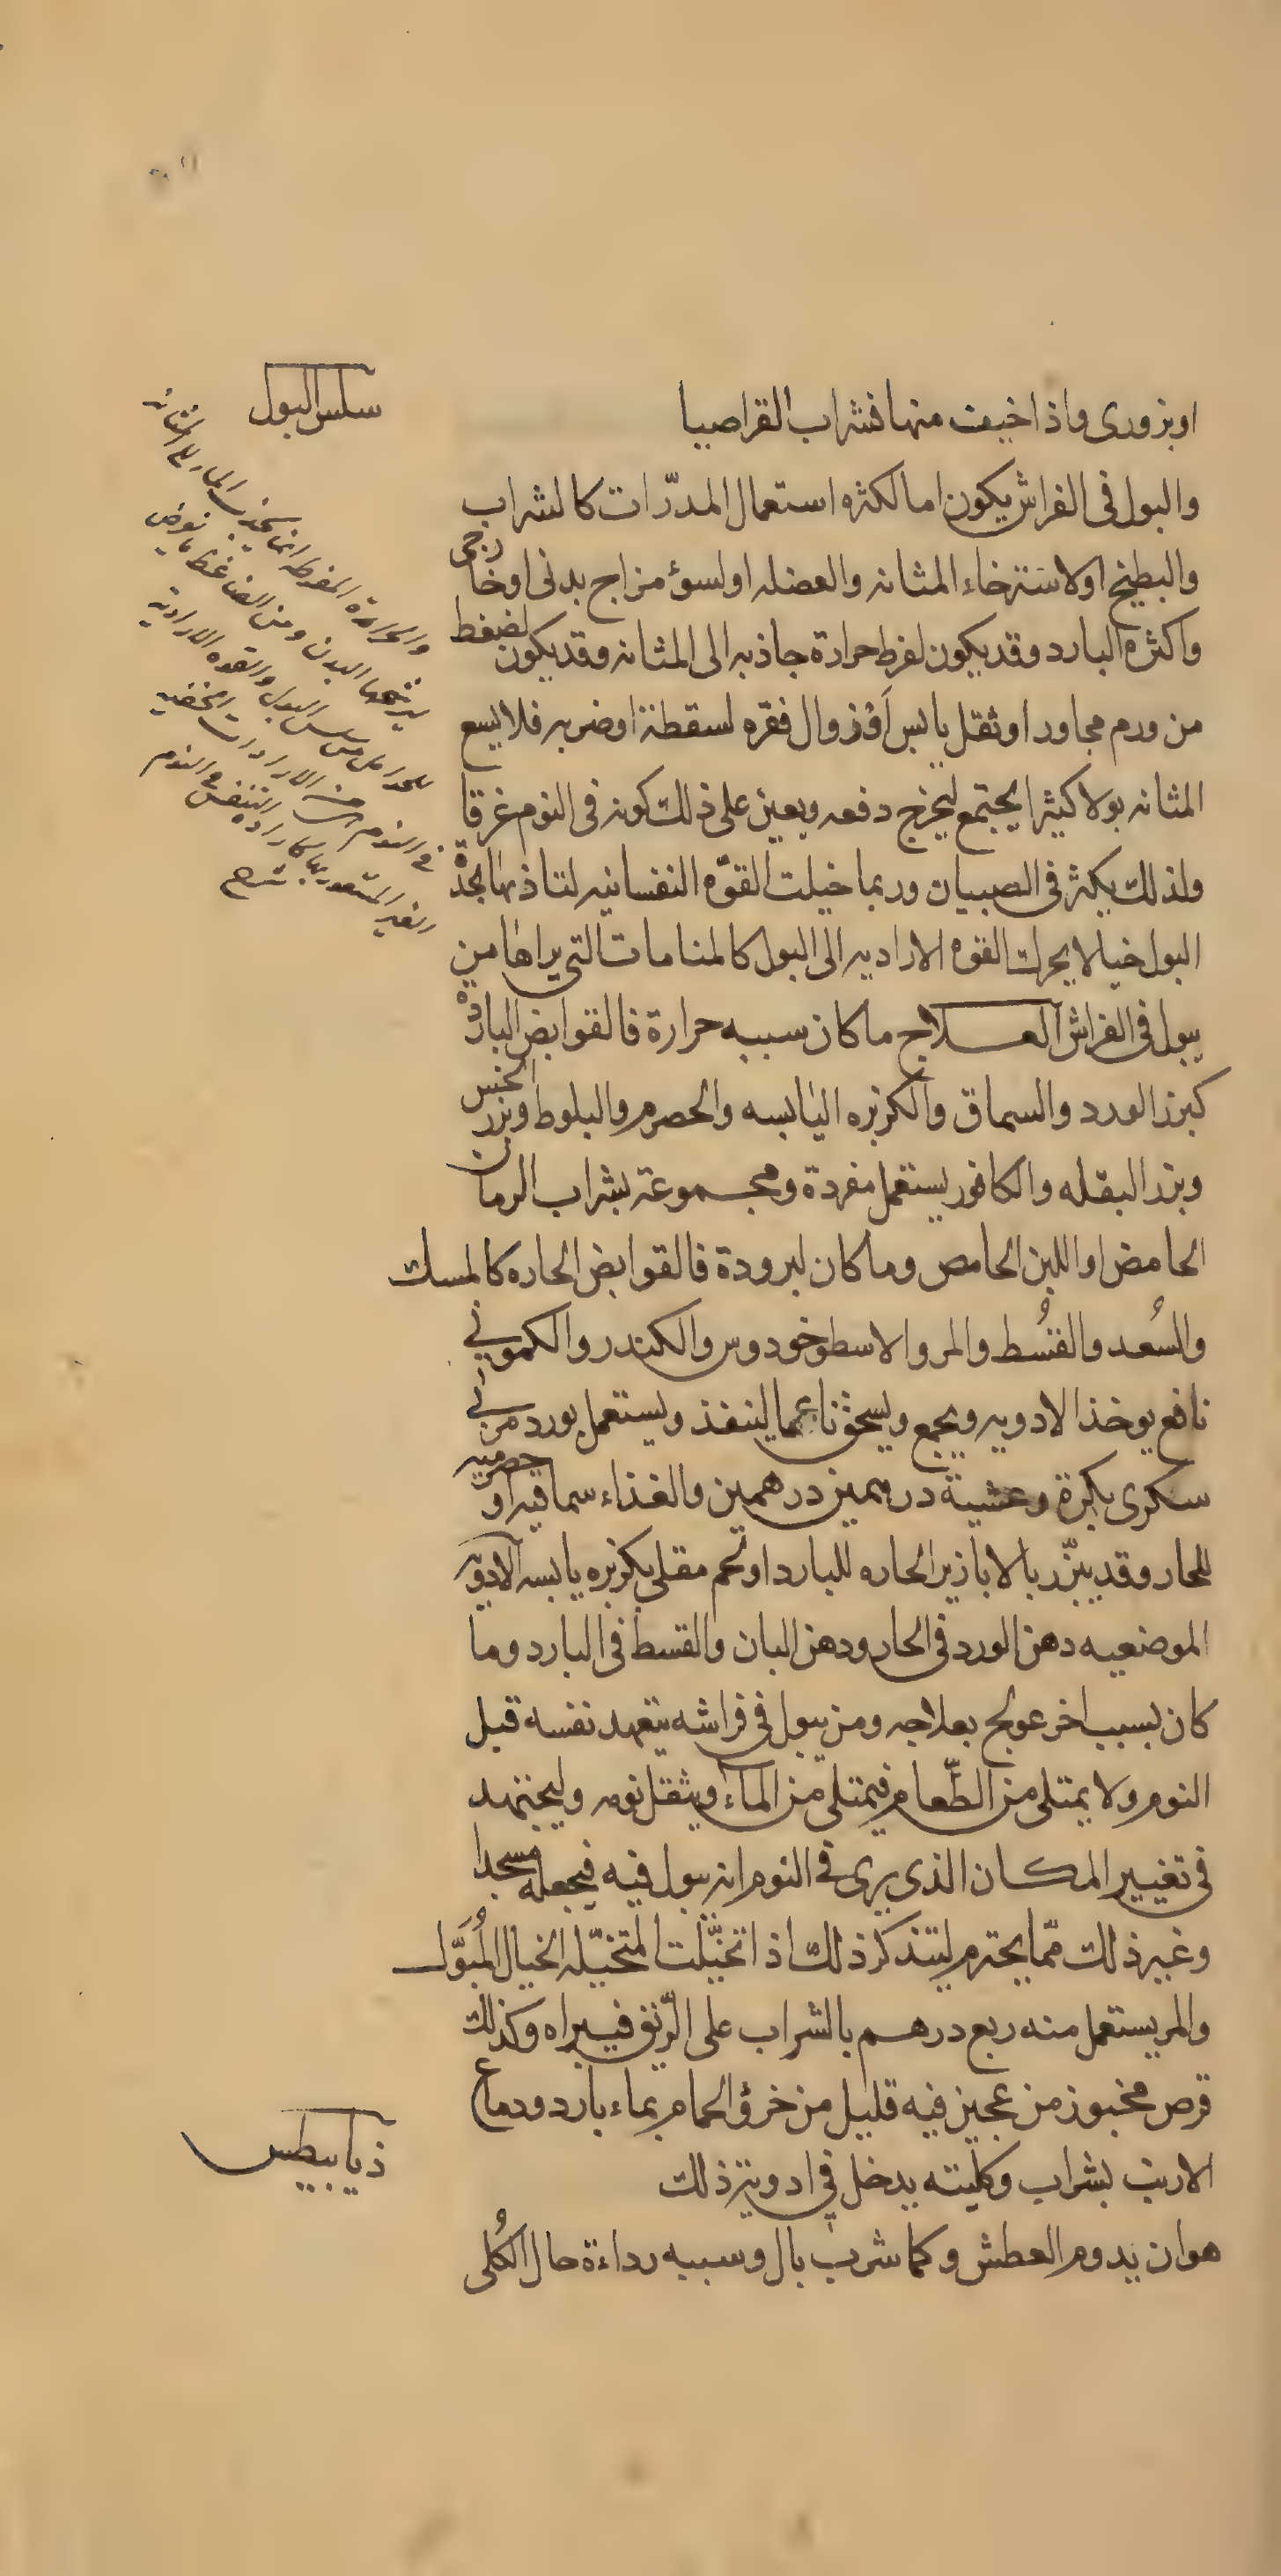 سلس البول
اوبزورى واذا خيف منها فشراب القراصيا
والبول فى الفراش يكون اما لكثره استعمال المدرّات كالشراب
والبطيخ او لاسترخاء المثانه والعضله او لسوء مزاج بدنى او خارجى
واكثره البارد وقد يكون لفرط حرارة جاذبه الى المثانه وقد يكون لضغط
من ورم مجاور او ثقل يابس او زوال فقره لسقطة او ضربه فلا يسع
المثانه بولا كثيرا يجتمع ليخرج دفعه ويعين على ذلك كونه فى النوم غرقا
ولذلك يكثر فى الصبيان وربما خيلت القوّه النفسانيه لتاذيها بحدّة
البول خيالا يحرك القوه الاراديه الى البول كالمنامات التى يراها من
يبول فى الفراش العلاج ما كان سببه حرارة فالقوابض البارده
كبزر الورد والسماق والكزبره اليابسه والحصرم والبلوط وبزر الخس
وبزر البقله والكافور يستعمل مفردة ومجموعة بشراب الرمان
الحامض او اللبن الحامض وما كان لبرودة فالقوابض الحاره كالمسك
والسُعد والقُسط والمر والاسطوخودوس والكندر والكمونى
نافع يوخذ الادويه ويجمع ويسحق ناعما لينفذ ويستعمل بورد مربى
سكرى بكرة وعشية درهمين درهمين والغذاء سماقيه او حصرميه
للحار وقد يبزّر بالابازير الحاره للبارد او لحم مقلى بكزبره يابسه الادويه
الموضعيه دهن الورد فى الحار ودهن البان والقسط فى البارد وما
كان لسبب اخر عولج بعلاجه ومن يبول فى فراشه يتعهد نفسه قبل
النوم ولا يمتلى من الطّعام فيمتلى من الماء ويثقل نومه وليجتهد
فى تغيير المكان الذى يرى فى النوم انه يبول فيه فيجعله مسجدا
وغير ذلك ممّا يحترم ليتذكر ذلك اذا تخيّلت المتخيّله الخيال المُبَوّل
والمر يستعمل منه ربع درهم بالشراب على الرّيق فيبراه وكذلك
قرص مخبوز من عجين فيه قليل من خرؤ الحمام بماء بارد ودماع
الارنب بشراب وكليته يدخل فى ادوية ذلك
ذيابيطس
هو ان يدوم العطش وكما شرب بال وسببه رداءة حال الكُلى
والحرارة المفرطه انما يجذب الماء الى المثانه
من البول والقوه الاراديه
فى النوم من الارادات الخفيه
الغير المشعور بها كارادة التنفس فى النوم
شرح